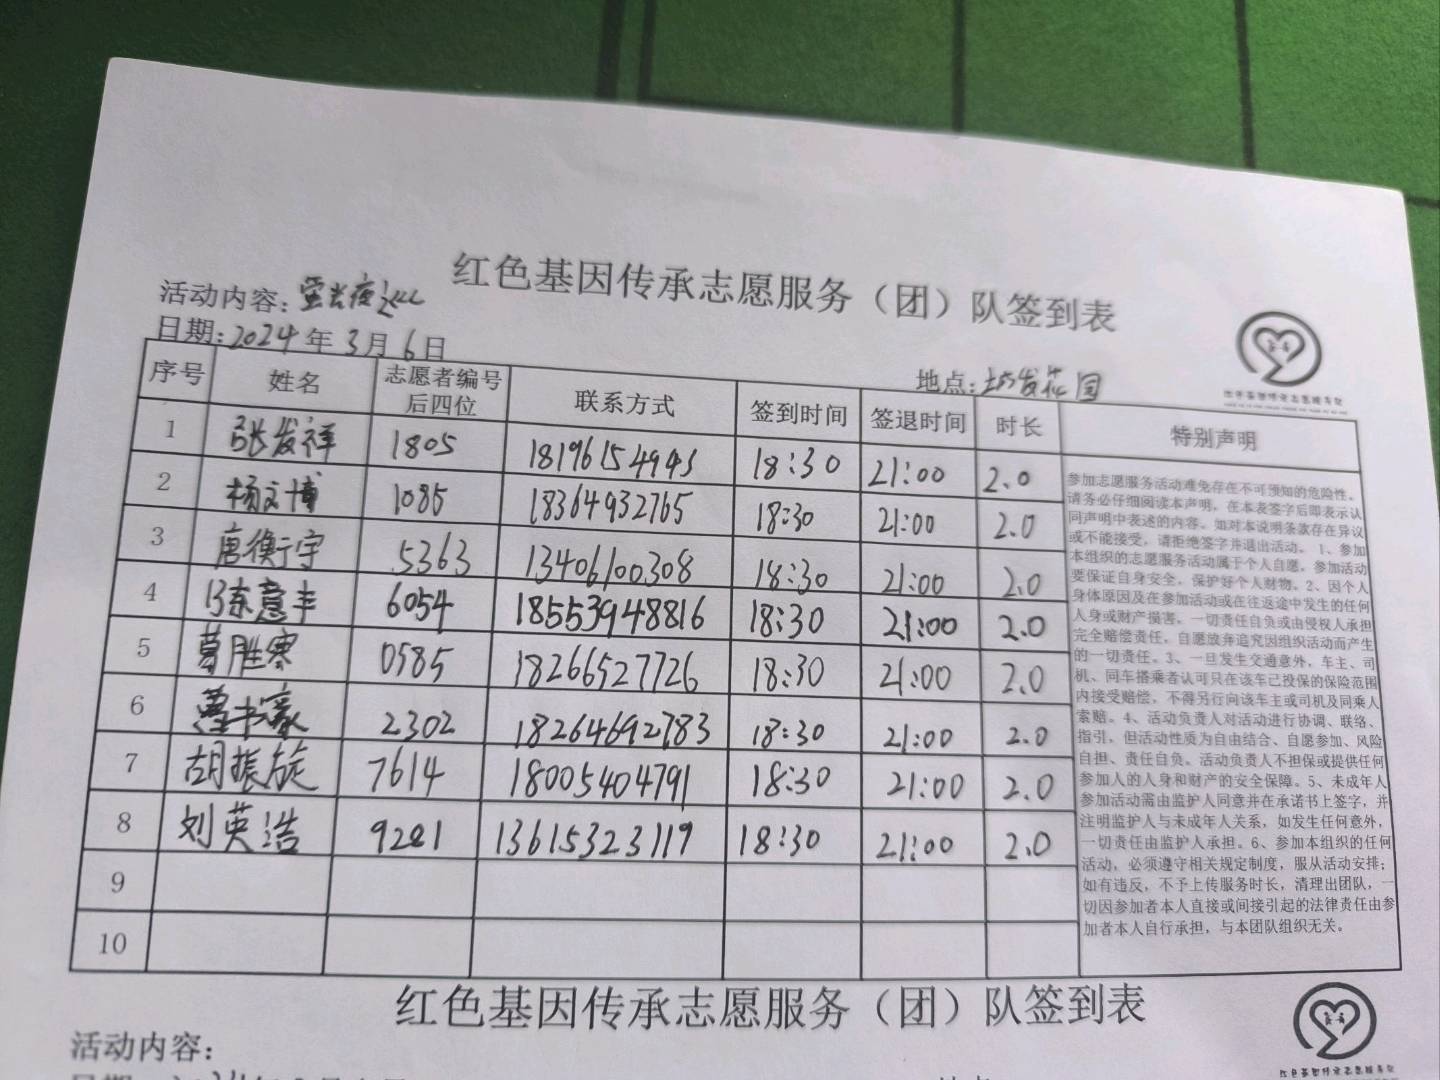 红色基因传承志愿服务（团）队签到表
活动内容：萤光夜巡
日期：2024年3月6日
地点：坊发花园
序号 姓名 志愿者编号后四位 联系方式 签到时间 签退时间 时长 特别声明
1 张发祥 1805 18:30 21:00 2.0
2 杨文博 1085 18364932765 18:30 21:00 2.0
3 唐衡宇 5363 13406100308 18:30 21:00 2.0
4 陈意丰 6054 18553948816 18:30 21:00 2.0
5 葛胜寒 0585 18266527726 18:30 21:00 2.0
6 2302 18264692783 18:30 21:00 2.0
7 胡振旋 7614 18005404791 18:30 21:00 2.0
8 刘英浩 9281 13615323119 18:30 21:00 2.0
9
10
参加志愿服务活动难免存在不可预知的危险性。
请务必仔细阅读本声明，在本表签字后即表示认
同声明中表述的内容。如对本说明条款存在异议
或不能接受，请拒绝签字并退出活动。 1、参加
本组织的志愿服务活动属于个人自愿。参加活动
要保证自身安全，保护好个人财物。2、因个人
身体原因及在参加活动或在往返途中发生的任何
人身或财产损害，一切责任自负或由侵权人承担
完全赔偿责任，自愿放弃追究因组织活动而产生
的一切责任。3、一旦发生交通意外，车主、司
机、同车搭乘者认可只在该车已投保的保险范围
内接受赔偿，不得另行向该车主或司机及同乘人
索赔。4、活动负责人对活动进行协调、联络、
指引，但活动性质为自由结合、自愿参加、风险
自担、责任自负。活动负责人不担保或提供任何
参加人的人身和财产的安全保障。5、未成年人
参加活动需由监护人同意并在承诺书上签字，并
注明监护人与未成年人关系，如发生任何意外，
一切责任由监护人承担。6、参加本组织的任何
活动，必须遵守相关规定制度，服从活动安排；
如有违反，不予上传服务时长，清理出团队，一
切因参加者本人直接或间接引起的法律责任由参
加者本人自行承担，与本团队组织无关。
红色基因传承志愿服务（团）队签到表
活动内容：